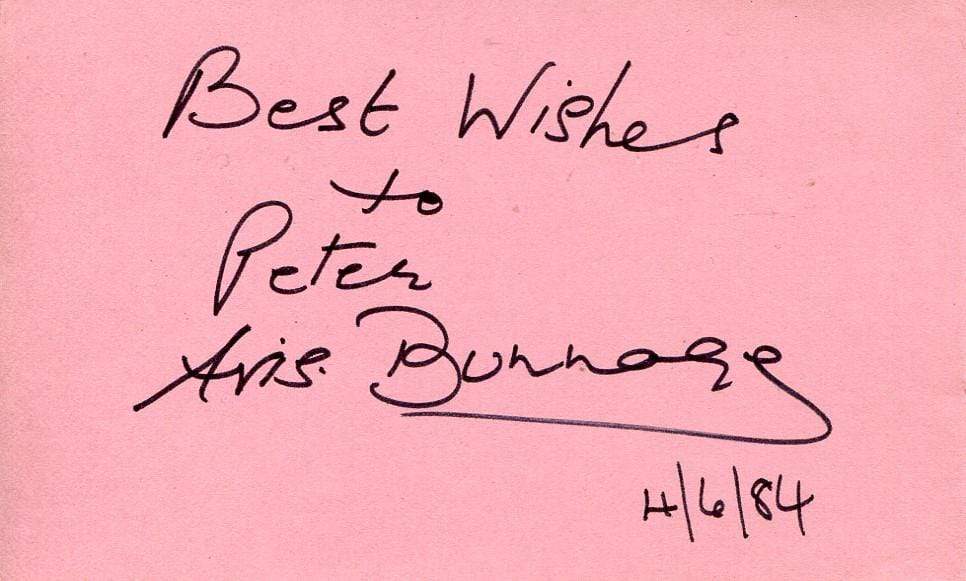 Best Wishes
to
Peter
Avis. Bunnage
4/6/84